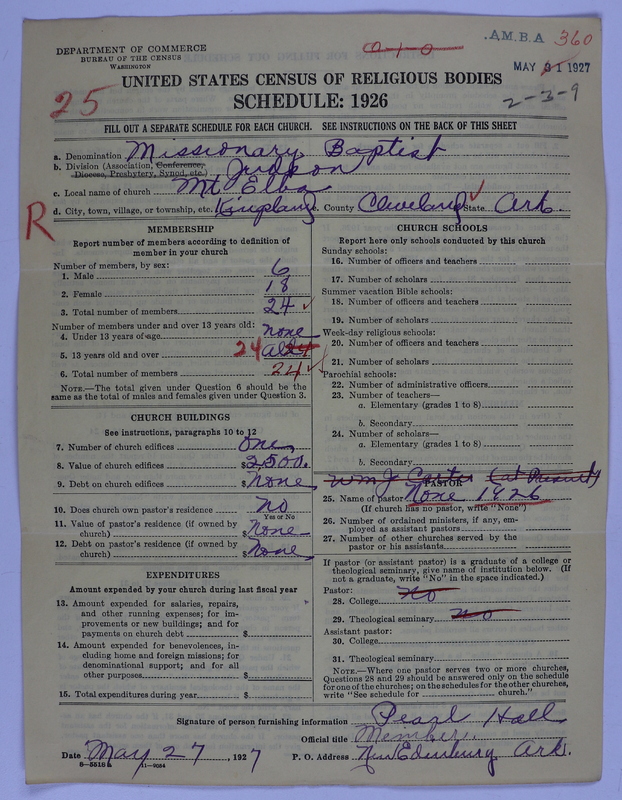 A.M.B.A 360
DEPARTMENT OF COMMERCE
BUREAU OF THE CENSUS
WASHINGTON
MAY 31 1927
2-3-9
25
UNITED STATES CENSUS OF RELIGIOUS BODIES
SCHEDULE: 1926
FILL OUT A SEPARATE SCHEDULE FOR EACH CHURCH. SEE INSTRUCTIONS ON THE BACK OF THIS SHEET
a. Denomination Missionary Baptist
b. Division (Association, Conference, Diocese, Presbytery, Synod, etc.) Judson
c. Local name of church Mt Elba
d. City, town, village, or township, etc. Kingsland County Cleveland State Ark.
R
MEMBERSHIP
Report number of members according to definition of
member in your church
Number of members, by sex:
1. Male 6
2. Female 18
3. Total number of members 24
Number of members under and over 13 years old:
4. Under 13 years of age none
5. 13 years old and over 24 all 24
6. Total number of members 24
NOTE.—The total given under Question 6 should be the
same as the total of males and females given under Question 3.
CHURCH BUILDINGS
See instructions, paragraphs 10 to 12
7. Number of church edifices One
8. Value of church edifices $2500.
9. Debt on church edifices $None
10. Does church own pastor's residence no
Yes or No
11. Value of pastor's residence (if owned by
church) $None
12. Debt on pastor's residence (if owned by
church) $None
EXPENDITURES
Amount expended by church during last fiscal year
13. Amount expended for salaries, repairs,
and other running expenses; for im-
provements or new buildings; and for
payments on church debt $
14. Amount expended for benevolences, in-
cluding home and foreign missions; for
denominational support; and for all
other purposes $
15. Total expenditures during year $
CHURCH SCHOOLS
Report here only schools conducted by this church
Sunday schools:
16. Number of officers and teachers
17. Number of scholars
Summer vacation Bible schools:
18. Number of officers and teachers
19. Number of scholars
Week-day religious schools:
20. Number of officers and teachers
21. Number of scholars
Parochial schools:
22. Number of administrative officers
23. Number of teachers—
a. Elementary (grades 1 to 8)
b. Secondary
24. Number of scholars—
a. Elementary (grades 1 to 8)
b. Secondary
Wm J Carter (at Present)
PASTOR
25. Name of pastor None 1926
(If church has no pastor, write "None")
26. Number of ordained ministers, if any, em-
ployed as assistant pastors
27. Number of other churches served by the
pastor or his assistants
If pastor (or assistant pastor) is a graduate of a college or
theological seminary, give name of institution below. (If
not a graduate, write "No" in the space indicated.)
Pastor:
28. College No
29. Theological seminary no
Assistant pastor:
30. College
31. Theological seminary
NOTE.—Where one pastor serves two or more churches,
Questions 28 and 29 should be answered only on the schedule
for one of the churches; on the schedules for the other churches,
write "See schedule for church."
Signature of person furnishing information Pearl Hall
Official title Member
Date May 27, 1927 P. O. Address New Edinburg Ark.
8-5518a 11-9054